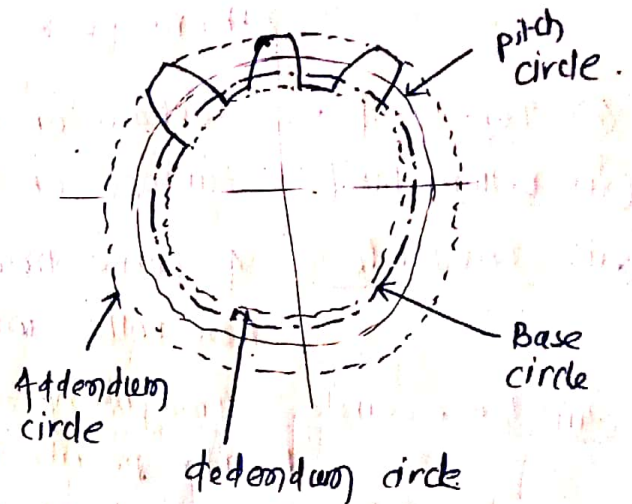 pitch
circle.
Base
circle
Addendum
circle
dedendum circle